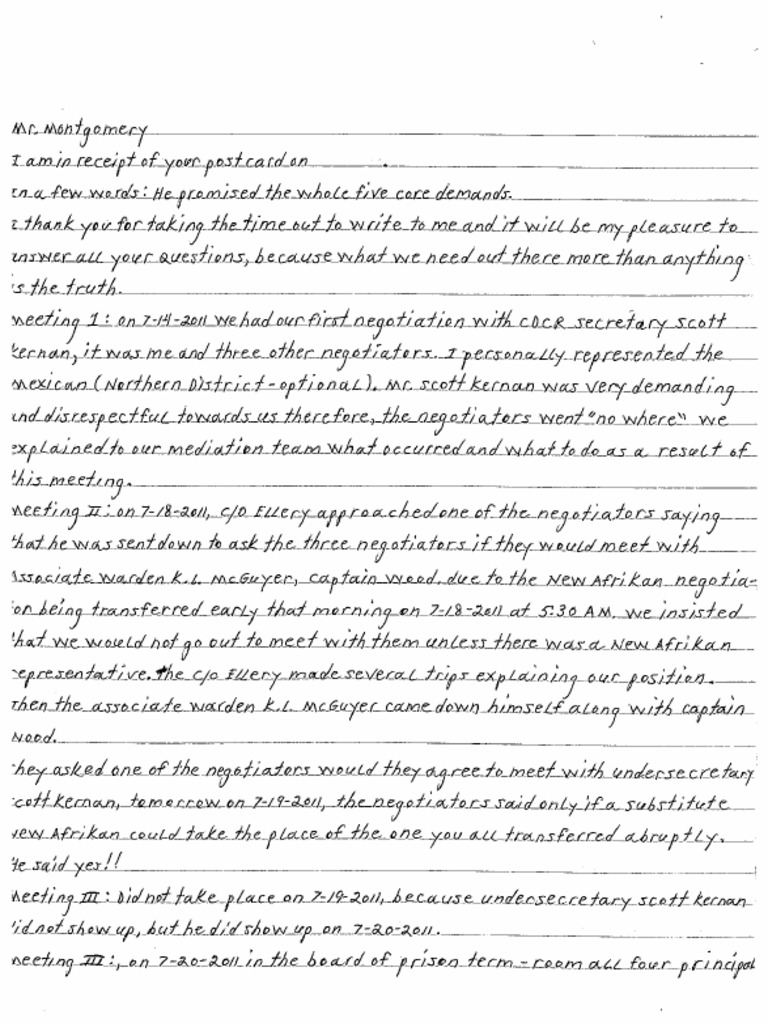 Mr. Montgomery
I am in receipt of your postcard on ______.
In a few words: He promised the whole five core demands.
I thank you for taking the time out to write to me and it will be my pleasure to
answer all your questions, because what we need out there more than anything
is the truth.
Meeting I: on 7-14-2011 we had our first negotiation with CDCR secretary Scott
Kernan, it was me and three other negotiators. I personally represented the
Mexican (Northern District-optional). Mr. Scott Kernan was very demanding
and disrespectful towards us therefore, the negotiators went "no where" we
explained to our mediation team what occurred and what to do as a result of
this meeting.
Meeting II: on 7-18-2011, C/O Ellery approached one of the negotiators saying
that he was sent down to ask the three negotiators if they would meet with
Associate Warden K.L. McGuyer, Captain Wood. due to the New Afrikan negotia-
on being transferred early that morning on 7-18-2011 at 5:30 AM. we insisted
that we would not go out to meet with them unless there was a New Afrikan
representative. the C/O Ellery made several trips explaining our position.
Then the associate warden K.L. McGuyer came down himself along with captain
Wood.
They asked one of the negotiators would they agree to meet with undersecretary
Scott Kernan, tomorrow on 7-19-2011, the negotiators said only if a substitute
New Afrikan could take the place of the one you all transferred abruptly.
He said yes!!
Meeting III: Did not take place on 7-19-2011, because undersecretary Scott Kernan
did not show up, but he did show up on 7-20-2011.
Meeting III:, on 7-20-2011 in the board of prison term-room all four principal